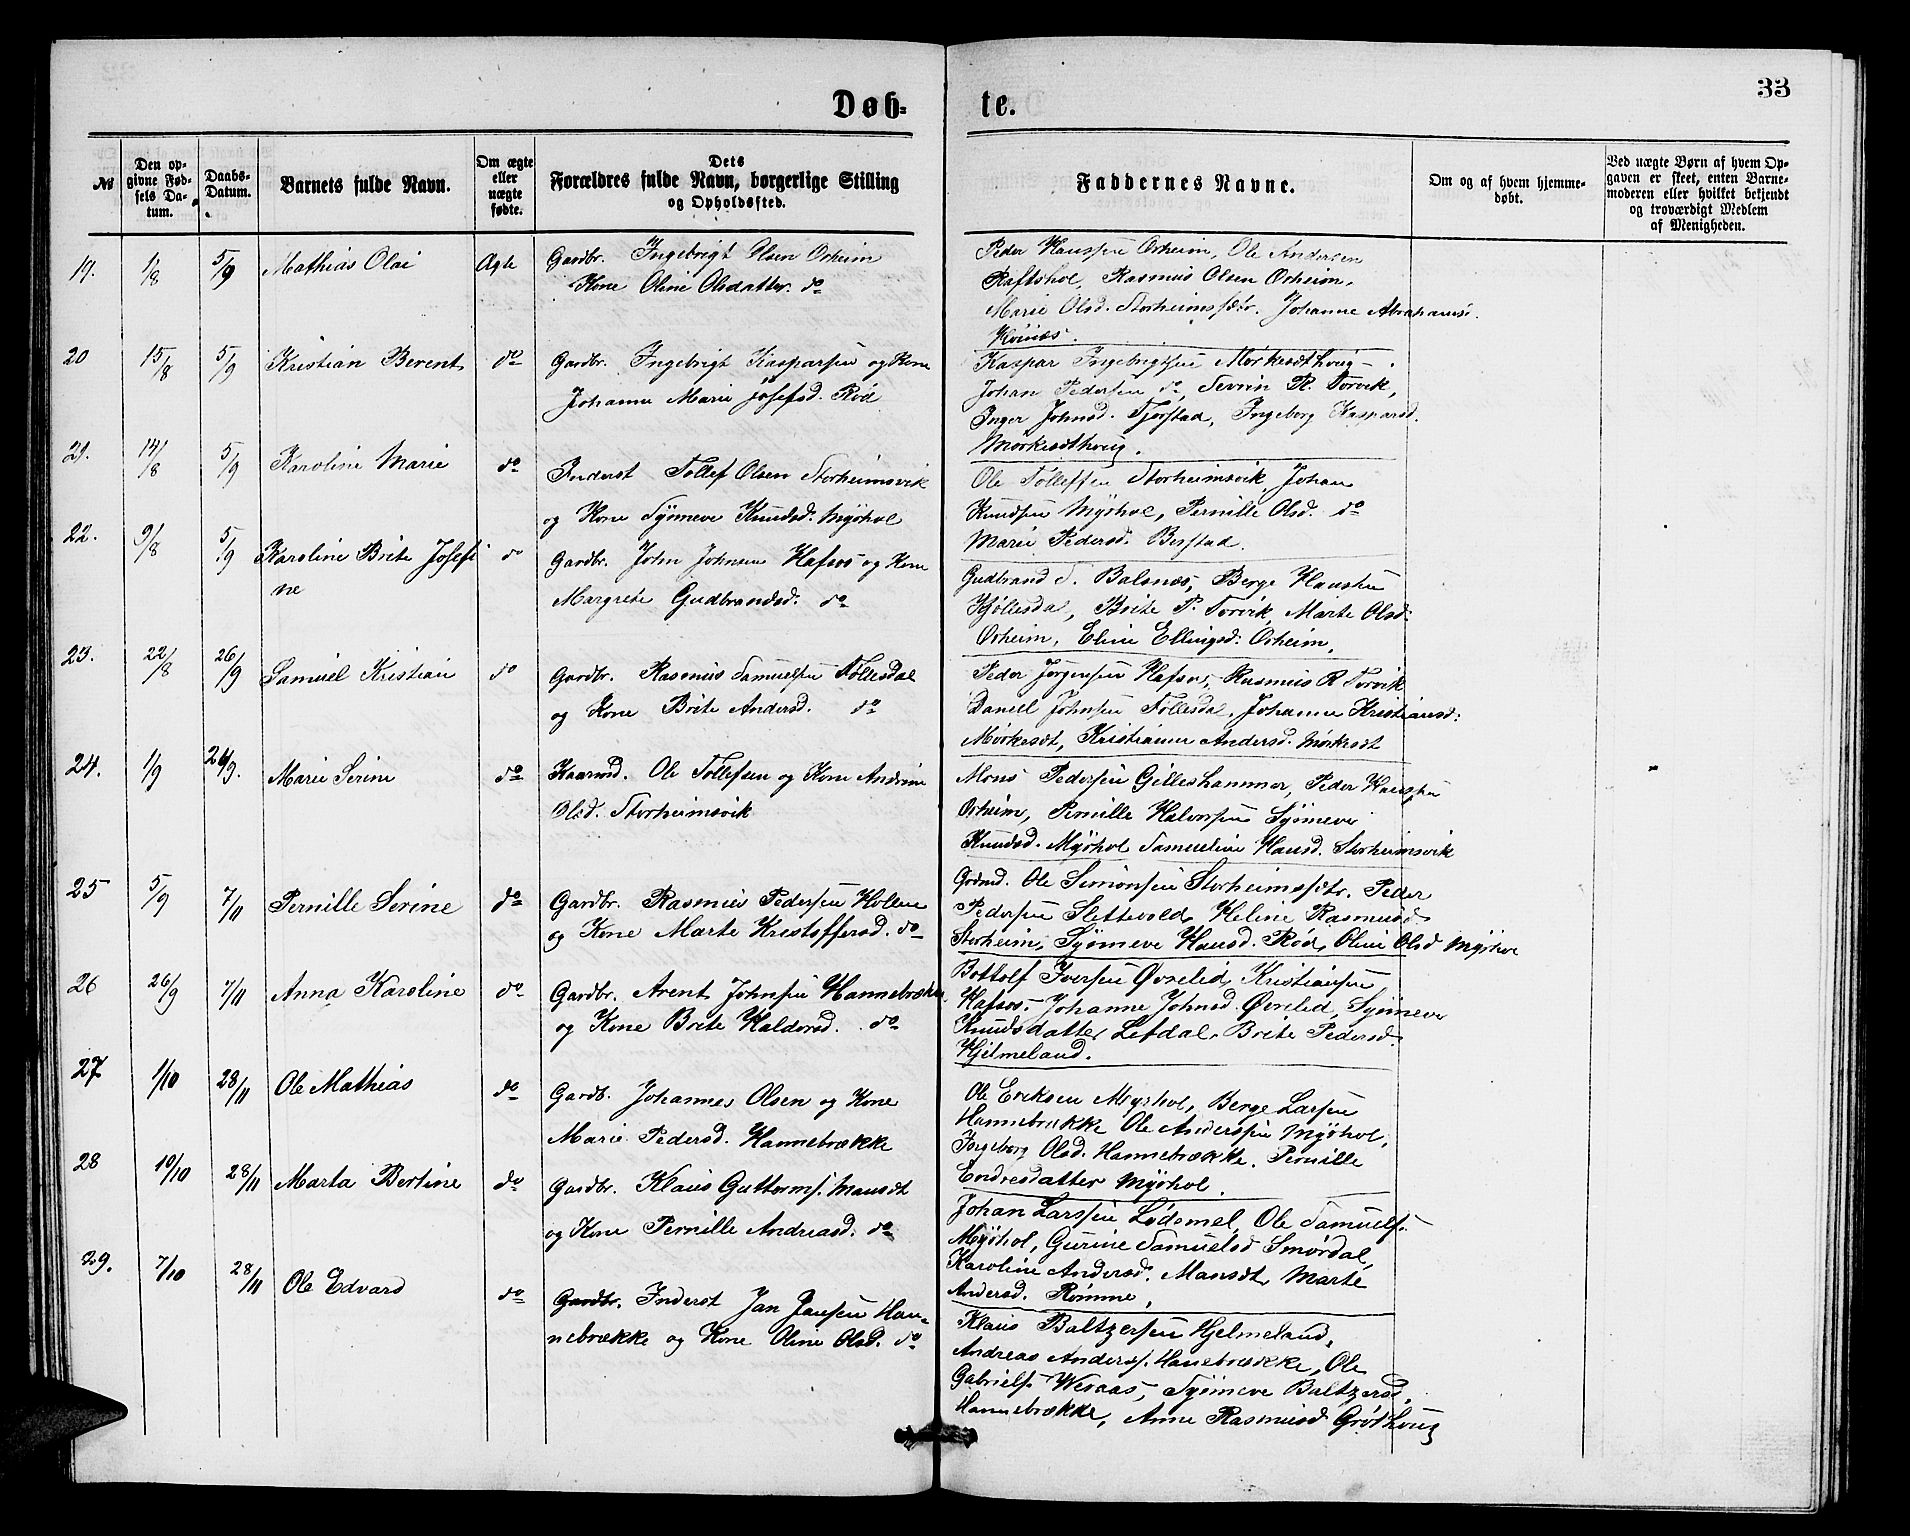 Døb-
te.
33
№
Den op-
givne Fød-
sels Da-
tum.
Daabs-
Datum.
Barnets fulde Navn.
Om ægte
eller
uægte
fødte.
Dets
Forældres fulde Navn, borgerlige Stilling
og Opholdssted.
Faddernes Navne.
Om og af hvem hjemme-
døbt.
Ved uægte Børn af hvem Op-
gaven er skeet, enten Barne-
moderen eller hvilket bekjendt
og troværdigt Medlem
af Menigheden.
19. 1/8 5/9 Mathias Olai Ægte
Gardbr. Ingebrigt Olsen Orheim
Kone Oline Olsdatter. do
Peder Hanssen Orheim, Ole Andersen
Raftshol, Rasmus Olsen Orheim,
Marie Olsd. Storheimssætr. Johanne Abrahams.
20 15/8 5/9 Kristian Berent do
Gardbr. Ingebrigt Kasparsen og Kone
Johanne Marie Josefsd. Rød
Kaspar Ingebrigtsen Mørkesdthoug
Johan Pedersen do, Severin R. Torvik,
Inger Johnsd. Tjørstad, Ingeborg Kasparsd.
Mørkesdthoug.
21. 14/8 5/9 Karoline Marie do
Inderst Tollef Olsen Storheimsvik
og Kone Synneve Knudsd. Myøhol
Ole Tolleffen Storheimsvik, Johan
Knudsen Myøhol, Pernille Olsd. do
Marie Pedersd. Berstad.
22. 9/8 5/9 Karoline Brite Josefi
ne do
Gardbr. John Johnsen Hafsos og Kone
Margrete Gudbrandsd. do
Gudbrand S. Balsnæs, Berge Hansen
Kjølesdal, Brite P. Torvik, Marte Olsd.
Orheim, Eline Ellingsd. Orheim.
23. 22/8 26/9 Samuel Kristian do
Gardbr. Rasmus Samuelsen Føllesdal
og Kone Brite Andersd. do
Peder Jørgensen Hafsos, Rasmus R Torvik
Daniel Johnsen Føllesdal, Johanne Kristiansd.
Mørkesdt, Kristianne Andersd. Mørkesdt
24. 1/9 26/9. Marie Serine do
Kaarmd. Ole Tollefsen og Kone Andrine
Olsd. Storheimsvik
Mons Pedersen Gilleshammer, Peder Hanssen
Orheim, Pernille Halvorsen Synneve
Knudsd. Myøhol Samueline Hansd. Storheimsvik
25 5/9 7/11 Pernille Serine do
Gardbr. Rasmus Pedersen Hollene
og Kone Marte Kristoffersd. do
Grdmd. Ole Simonsen Storheimssætr. Peder
Pedersen Slettevold, Heline Rasmusd
Storheim, Synneve Hansd. Rød, Oline Olsd Myøhol
26 26/9 7/11 Anna Karoline do
Gardbr. Arent Johnsen Hannebrække
og Kone Brite Haldorsd. do
Bottolf Iversen Øvrelid, Kristiansen
Hafsos. Johanne Johnsd. Øvrelid, Synneve
Knudsdatter Lefdal, Brite Pedersd.
Hjelmeland.
27 1/10 28/11 Ole Mathias do
Gardb. Johannes Olsen og Kone
Marie Pedersd. Hannebrække
Ole Eriksen Myøhol, Berge Larsen
Hannebrække Ole Anderssen Myøhol,
Ingeborg Olsd. Hannebrække. Pernille
Endresdatter Myøhol.
28 10/10 28/11 Marta Bertine do
Gardbr. Klaus Guttorms. Mansdt
og Kone Pernille Andreasd. do
Johan Larssen Lødemel, Ole Samuels.
Myøhol, Gurine Samuelsd Smørdal,
Karoline Andersd. Mansdt, Marte
Andersd. Rømme,
29. 7/10 28/11 Ole Edvard do
Gardbr. Inderst Jan Jansen Han-
nebrække og Kone Oline Olsd. do
Klaus Baltzersen Hjelmeland,
Andreas Anders. Hanebrække, Ole
Gabriels. Wesaas, Synneve Baltzersd.
Hannebrække, Anne Rasmusd Grøthoug